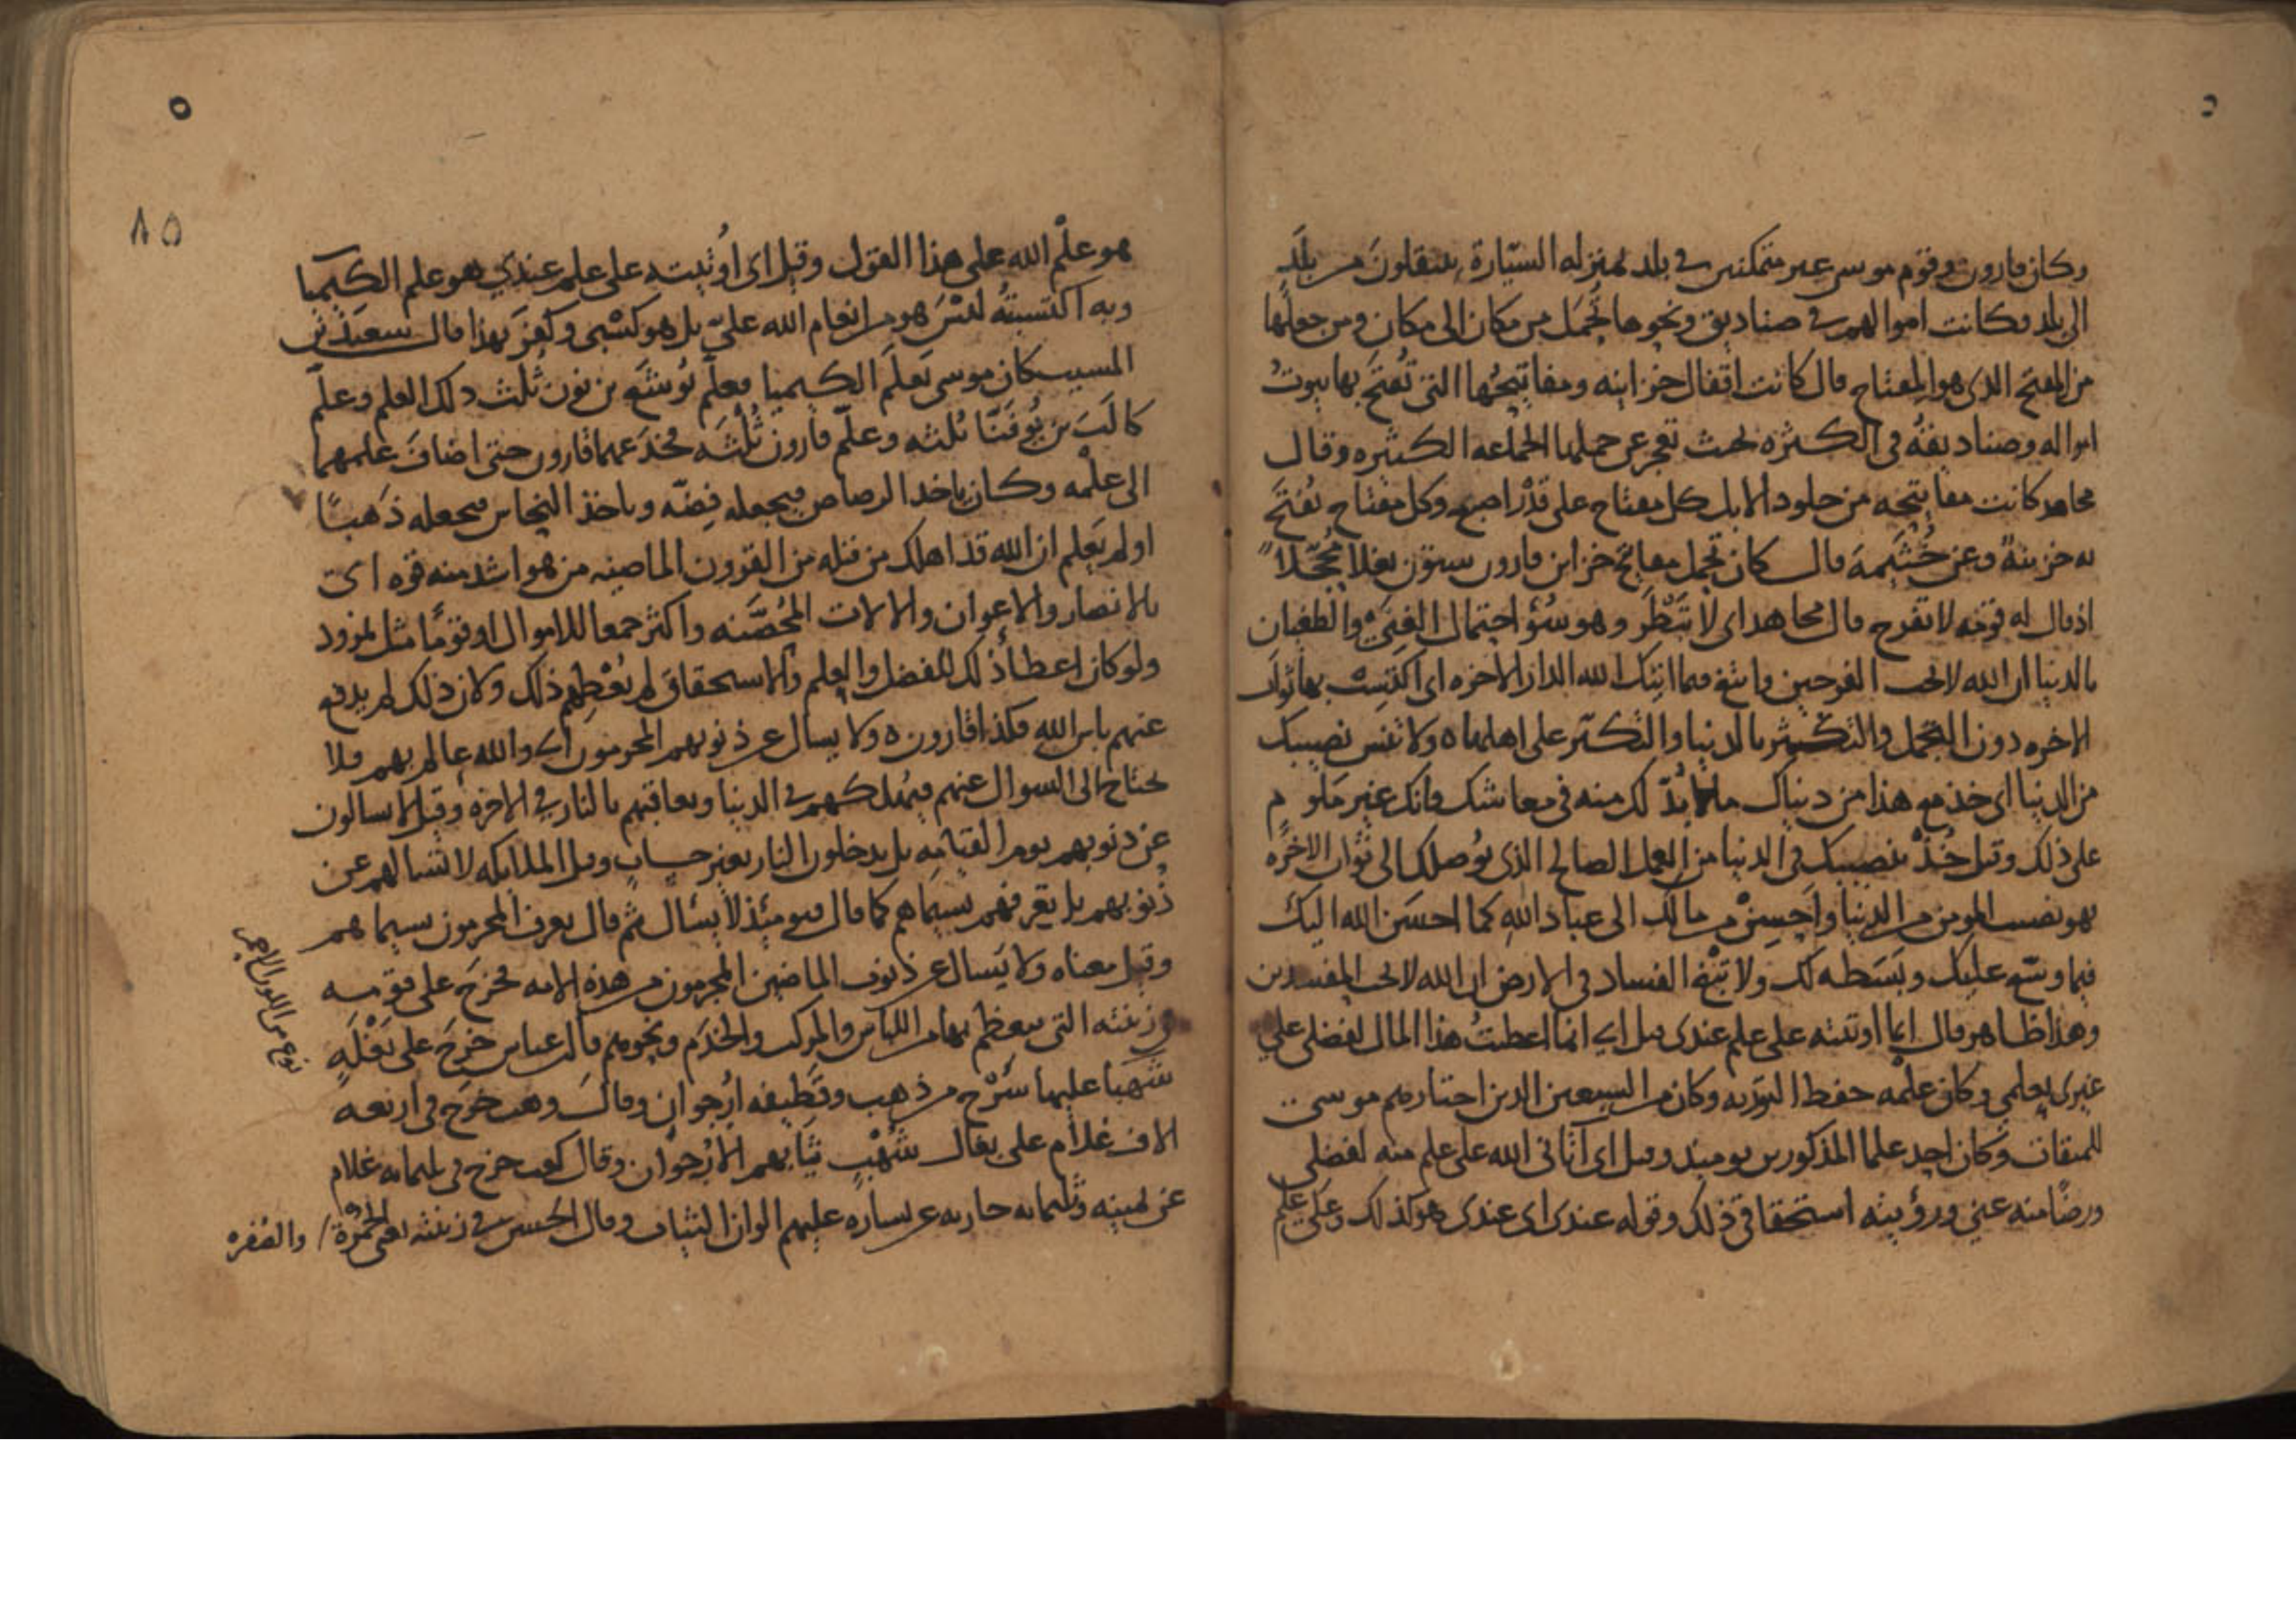 وكان قارون وقوم موسى غير متمكنين في بلد بمنزله السيّارة ينتقلون من بلد
الى بلد وكانت اموالهم في صناديق ونحوها تُحمَل من مكان الى مكان ومن جعلها
من المفتح الذي هو المفتاح قال كانت اقفال خزاينه ومفاتيحُها التي تُفتَح بها بيوتُ
امواله وصناديقُه في الكثره بحيث تعجز عن حملها الجماعه الكثيره وقال
مجاهد كانت مفاتيحه من جلود الابل كل مفتاح على قدْر اصبع وكل مفتاح يُفتَح
به خزينة وعن خُثَيمة قال كان تحمل مفاتح خزاين قارون ستون بغلا مُحجّلاً
اذ قال له قومه لا تفرح قال مجاهد اي لا تَبْطَر وهو سُؤ احتمال الغِنَي والطغيان
بالدنيا ان الله لا يحب الفرحين وابتغ فيما اتيك الله الدار الاخره اي اكتسب بها ثواب
الاخره دون التجمل والتكثير بالدنيا والتكبّر على اهلها ه ولا تنس نصيبك
من الدنيا اي خذ مع هذا من دنياك ما لا بُدّ لك منه في معاشك فانك غير ملوم
على ذلك وقيل خُذْ بنصيبك في الدنيا من العمل الصالح الذي يُوصلك الى ثواب الاخره
فهو نصيب المومن من الدنيا واَحسِنْ من مالك الى عباد الله كما احسَنَ الله اليك
فيما وسّع عليك وبَسَطه لك ولا تبْغ الفساد في الارض ان الله لا يحب المفسدين
وهذا ظاهر قال انما اوتيته على علم عندي قيل اي انما اعطيتُ هذا المال لفضلي على
غيري بعلمي وكان علمه حفظ التوريه وكان من السبعين الدين اختارهم موسى
للميقات وكان احد علما المذكورين يوميذ وقيل اي آتاني الله على علم منه لفضلي
ورضًا منه عني ورؤيته استحقاقي ذلك وقوله عندي اي عندي هو كذلك وعلى علم
٨٥
هو علْم الله على هذا القول وقيل اي اُوتيته على علم عندي هو علم الكيميا
وبه اكتسبتُه ليْسَ هو من انعام الله عليّ بل هو كسْبي وكفر بهذا قال سعيد بن
المسيب كان موسى تعلّم الكيميا فعلّم يُوشَع بن نون ثلث ذلك العلم وعلّم
كالَب بن يُوفَنّا ثلثه وعلّم قارون ثلثه فخدَعهما قارون حتى اضاف علمهما
الى علْمه وكان ياخذ الرصاص فيجعله فِضّه وياخذ النحاس فيجعله ذَهبًا
اولم يَعلم ان الله قد اهلك من قبله من القرون الماضيه من هو اشد منه قوه اي
بالانصار والاعوان والالات المُحصَّنه واكثر جمعا للاموال او قومًا مثل نمرود
ولو كان اعطا ذلك للفضل والعلم والاستحقاق لم يُعْطِهم ذلك ولان ذلك لم يدفع
عنهم باس الله فكذا قارون ه ولا يسال عن ذنوبهم المجرمون اي والله عالم بهم فلا
يحتاج الى السوال عنهم فيُهلكهم في الدنيا ويعاقبهم بالنار في الاخره وقيل لا يسالون
عن ذنوبهم يوم القيامه بل يدخلون النار بغير حساب وقيل الملايكه لا تسالهم عن
ذُنوبهم بل تعرفهم بسيماهم كما قال فيومئذ لا يسأل ثم قال يعرف المجرمون بسيماهم
وقيل معناه ولا يَسال عن ذنوب الماضين المجرمون من هذه الامه فخرج على قومه
في زينته التي يتعظم بها من اللباس والمركب والخدَم ونحوهم قال ابن عباس خرَجَ على بَغْلةٍ
شَهبا عليها سَرْج من ذهب وقطيفه اُرجُوان وقال وهب خرَجَ في اربعه
الاف غلام على بغال شُهْب ثيابهم الاُرْجوان وقال كعب خرج في ثلثمايه غلام
عن يمينه وثلثمايه جاريه عن يساره عليهم الوان الثياب وقال الحسن في زينته في الحُمْرَة والصُفره
نوع من اللون الاحمر